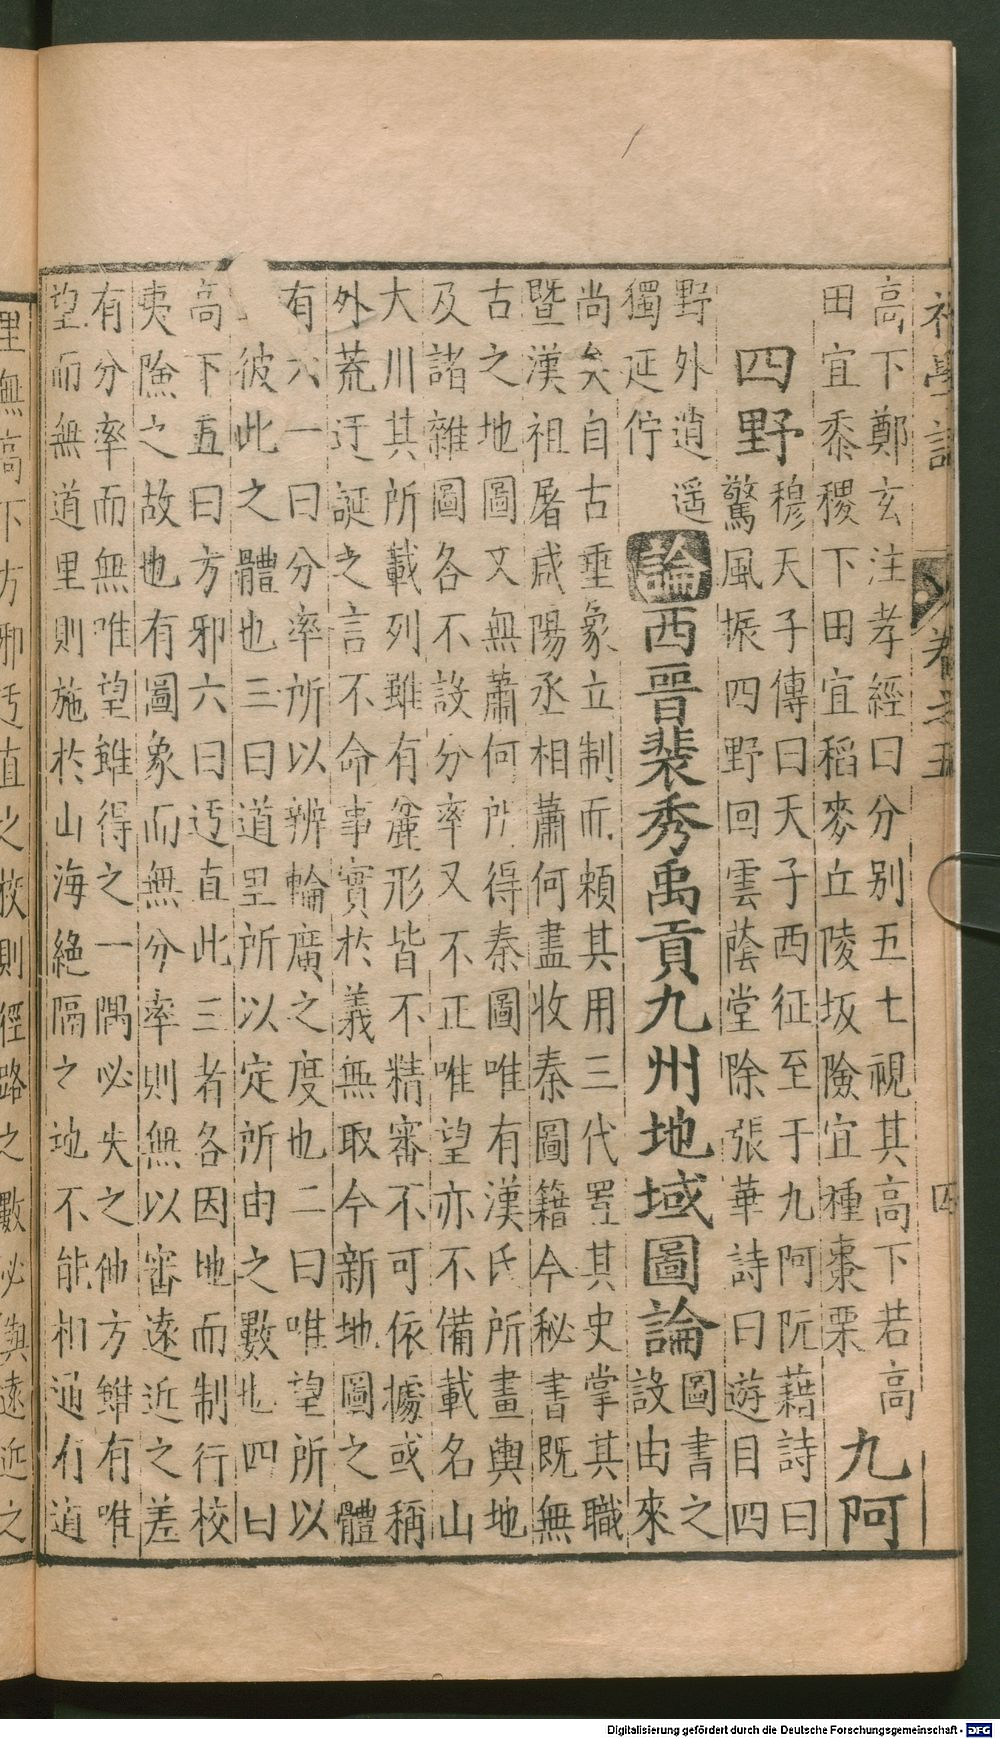 初學記 卷之五 四
高下鄭玄注孝經曰分别五七視其高下若高
田宜黍稷下田宜稻麥丘陵坂險宜種棗栗
九阿
四野
穆天子傳曰天子西征至于九阿阮藉詩曰
驚風振四野回雲蔭堂除張華詩曰遊目四
野外逍遥
獨延佇
論西晉裴秀禹貢九州地域圖論
圖書之
設由來
尚矣自古垂象立制而頼其用三代置其史掌其職
暨漢祖屠咸陽丞相蕭何盡收秦圖籍今秘書既無
古之地圖又無蕭何所得秦圖唯有漢氏所畫輿地
及諸雜圖各不設分率又不正唯望亦不備載名山
大川其所載列雖有麄形皆不精審不可依據或稱
外荒迂誕之言不命事實於義無取今新地圖之體
有六一曰分率所以辨輪廣之度也二曰唯望所以
彼此之體也三曰道里所以定所由之數也四曰
高下五曰方邪六曰迂直此三者各因地而制行校
夷險之故也有圖象而無分率則無以審遠近之差
有分率而無唯望雖得之一隅必失之他方雖有唯
望而無道里則施於山海絶隔之地不能相通有道
里無高下方邪迂直之校則徑路之數必與遠近之
Digitalisierung gefördert durch die Deutsche Forschungsgemeinschaft - DFG